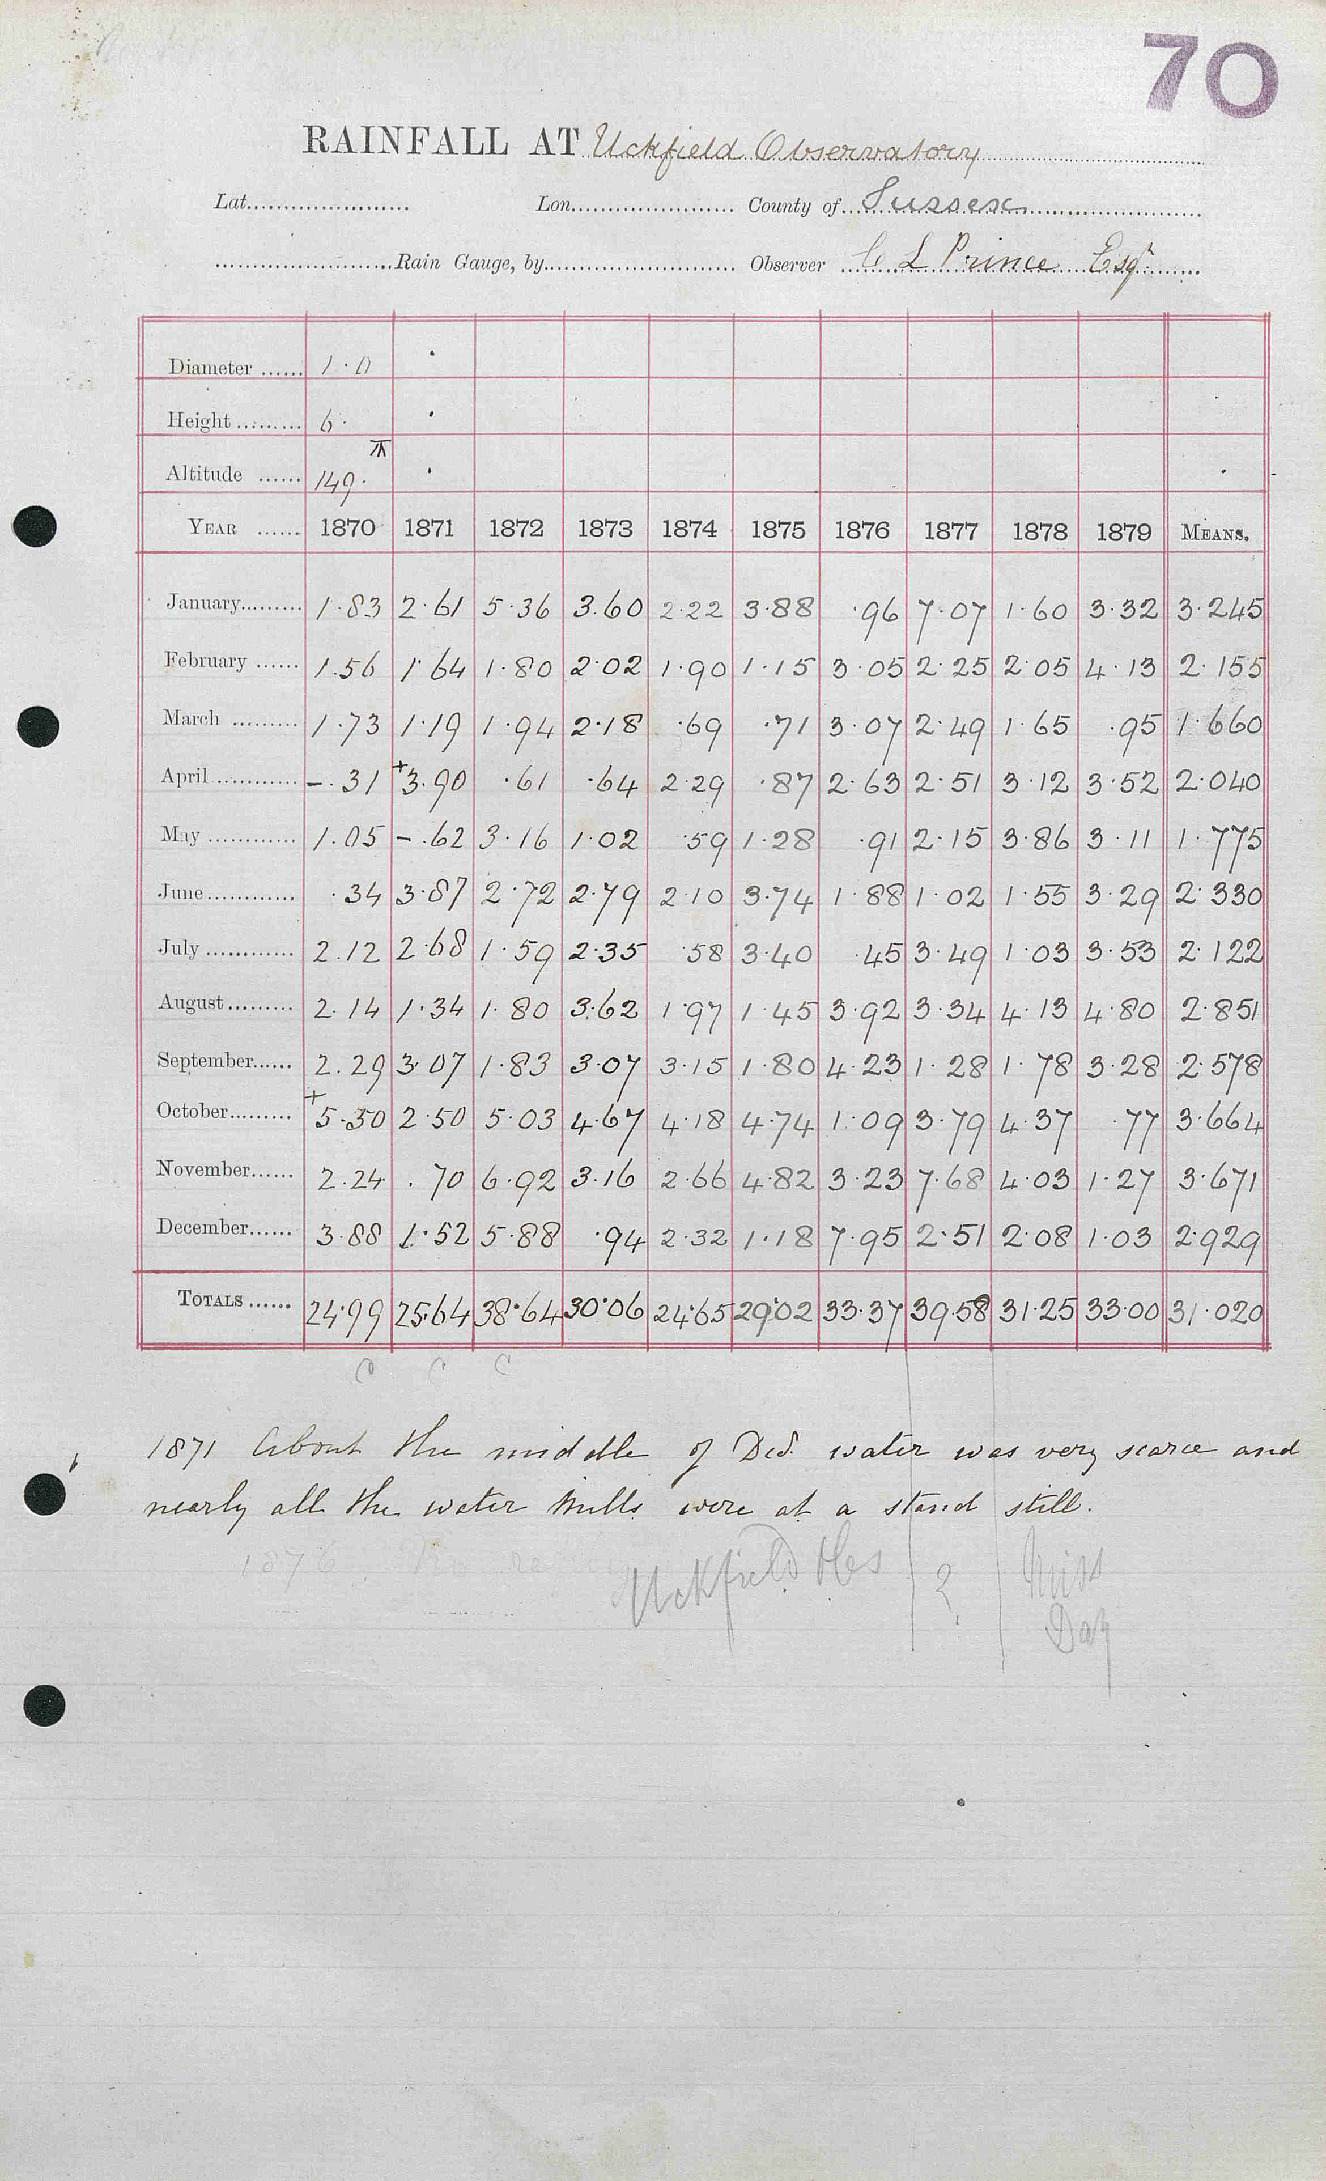 70
RAINFALL AT Uckfield Observatory
Lat. Lon. County of Sussex
Rain Gauge, by Observer C L Prince Esqr
Diameter 1·0
Height 6·
Altitude 149·
YEAR 1870 1871 1872 1873 1874 1875 1876 1877 1878 1879 MEANS.
January 1·83 2·61 5·36 3·60 2·22 3·88 ·96 7·07 1·60 3·32 3·245
February 1·56 1·64 1·80 2·02 1·90 1·15 3·05 2·25 2·05 4·13 2·155
March 1·73 1·19 1·94 2·18 ·69 ·71 3·07 2·49 1·65 ·95 1·660
April -·31 +3·90 ·61 ·64 2·29 ·87 2·63 2·51 3·12 3·52 2·040
May 1·05 -·62 3·16 1·02 ·59 1·28 ·91 2·15 3·86 3·11 1·775
June ·34 3·87 2·72 2·79 2·10 3·74 1·88 1·02 1·55 3·29 2·330
July 2·12 2·68 1·59 2·35 ·58 3·40 ·45 3·49 1·03 3·53 2·122
August 2·14 1·34 1·80 3·62 1·97 1·45 3·92 3·34 4·13 4·80 2·851
September 2·29 3·07 1·83 3·07 3·15 1·80 4·23 1·28 1·78 3·28 2·578
October +5·30 2·50 5·03 4·67 4·18 4·74 1·09 3·79 4·37 ·77 3·664
November 2·24 ·70 6·92 3·16 2·66 4·82 3·23 7·68 4·03 1·27 3·671
December 3·88 1·52 5·88 ·94 2·32 1·18 7·95 2·51 2·08 1·03 2·929
TOTALS 24·99 25·64 38·64 30·06 24·65 29·02 33·37 39·58 31·25 33·00 31·020
C C C
1871 About the middle of Decr. water was very scarce and
nearly all the water Mills were at a stand still.
1876. No
Uckfield Obs ? Miss
Day